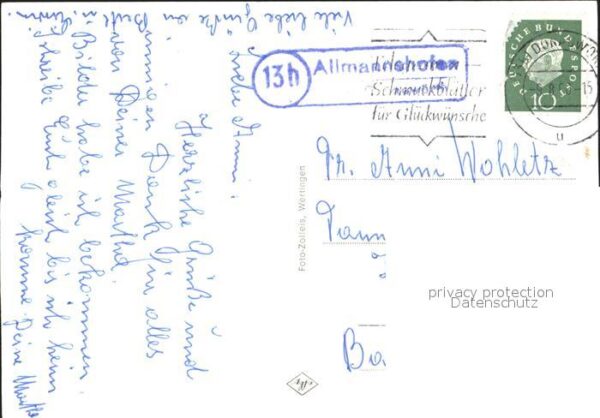 Viele liebe Grüße
Liebe Anni!
Herzliche Grüße und
innigen Dank für alles
von Deiner Marthl.
Bilder habe ich bekommen.
Schreibe Euch gleich bis ich heim
komme Deine Marthl
13b
Allmannshofen
Schmuckblätter
für Glückwünsche
DEUTSCHE BUNDESPOST
10
15
u
Fr. Anni Wohletz
Foto-Zolleis, Wertingen
privacy protection
Datenschutz
Ba